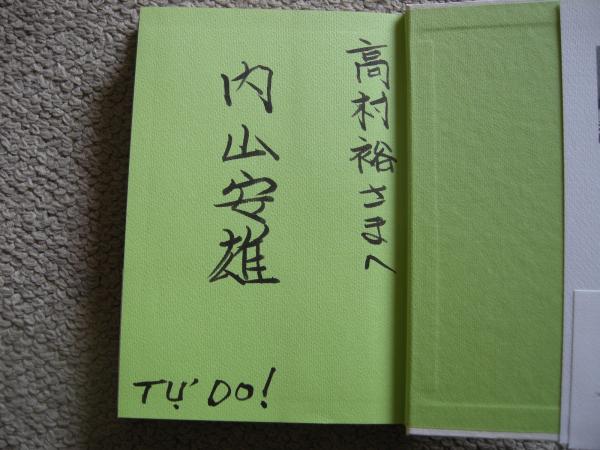 高村裕さまへ
内山安雄
TỰ DO!